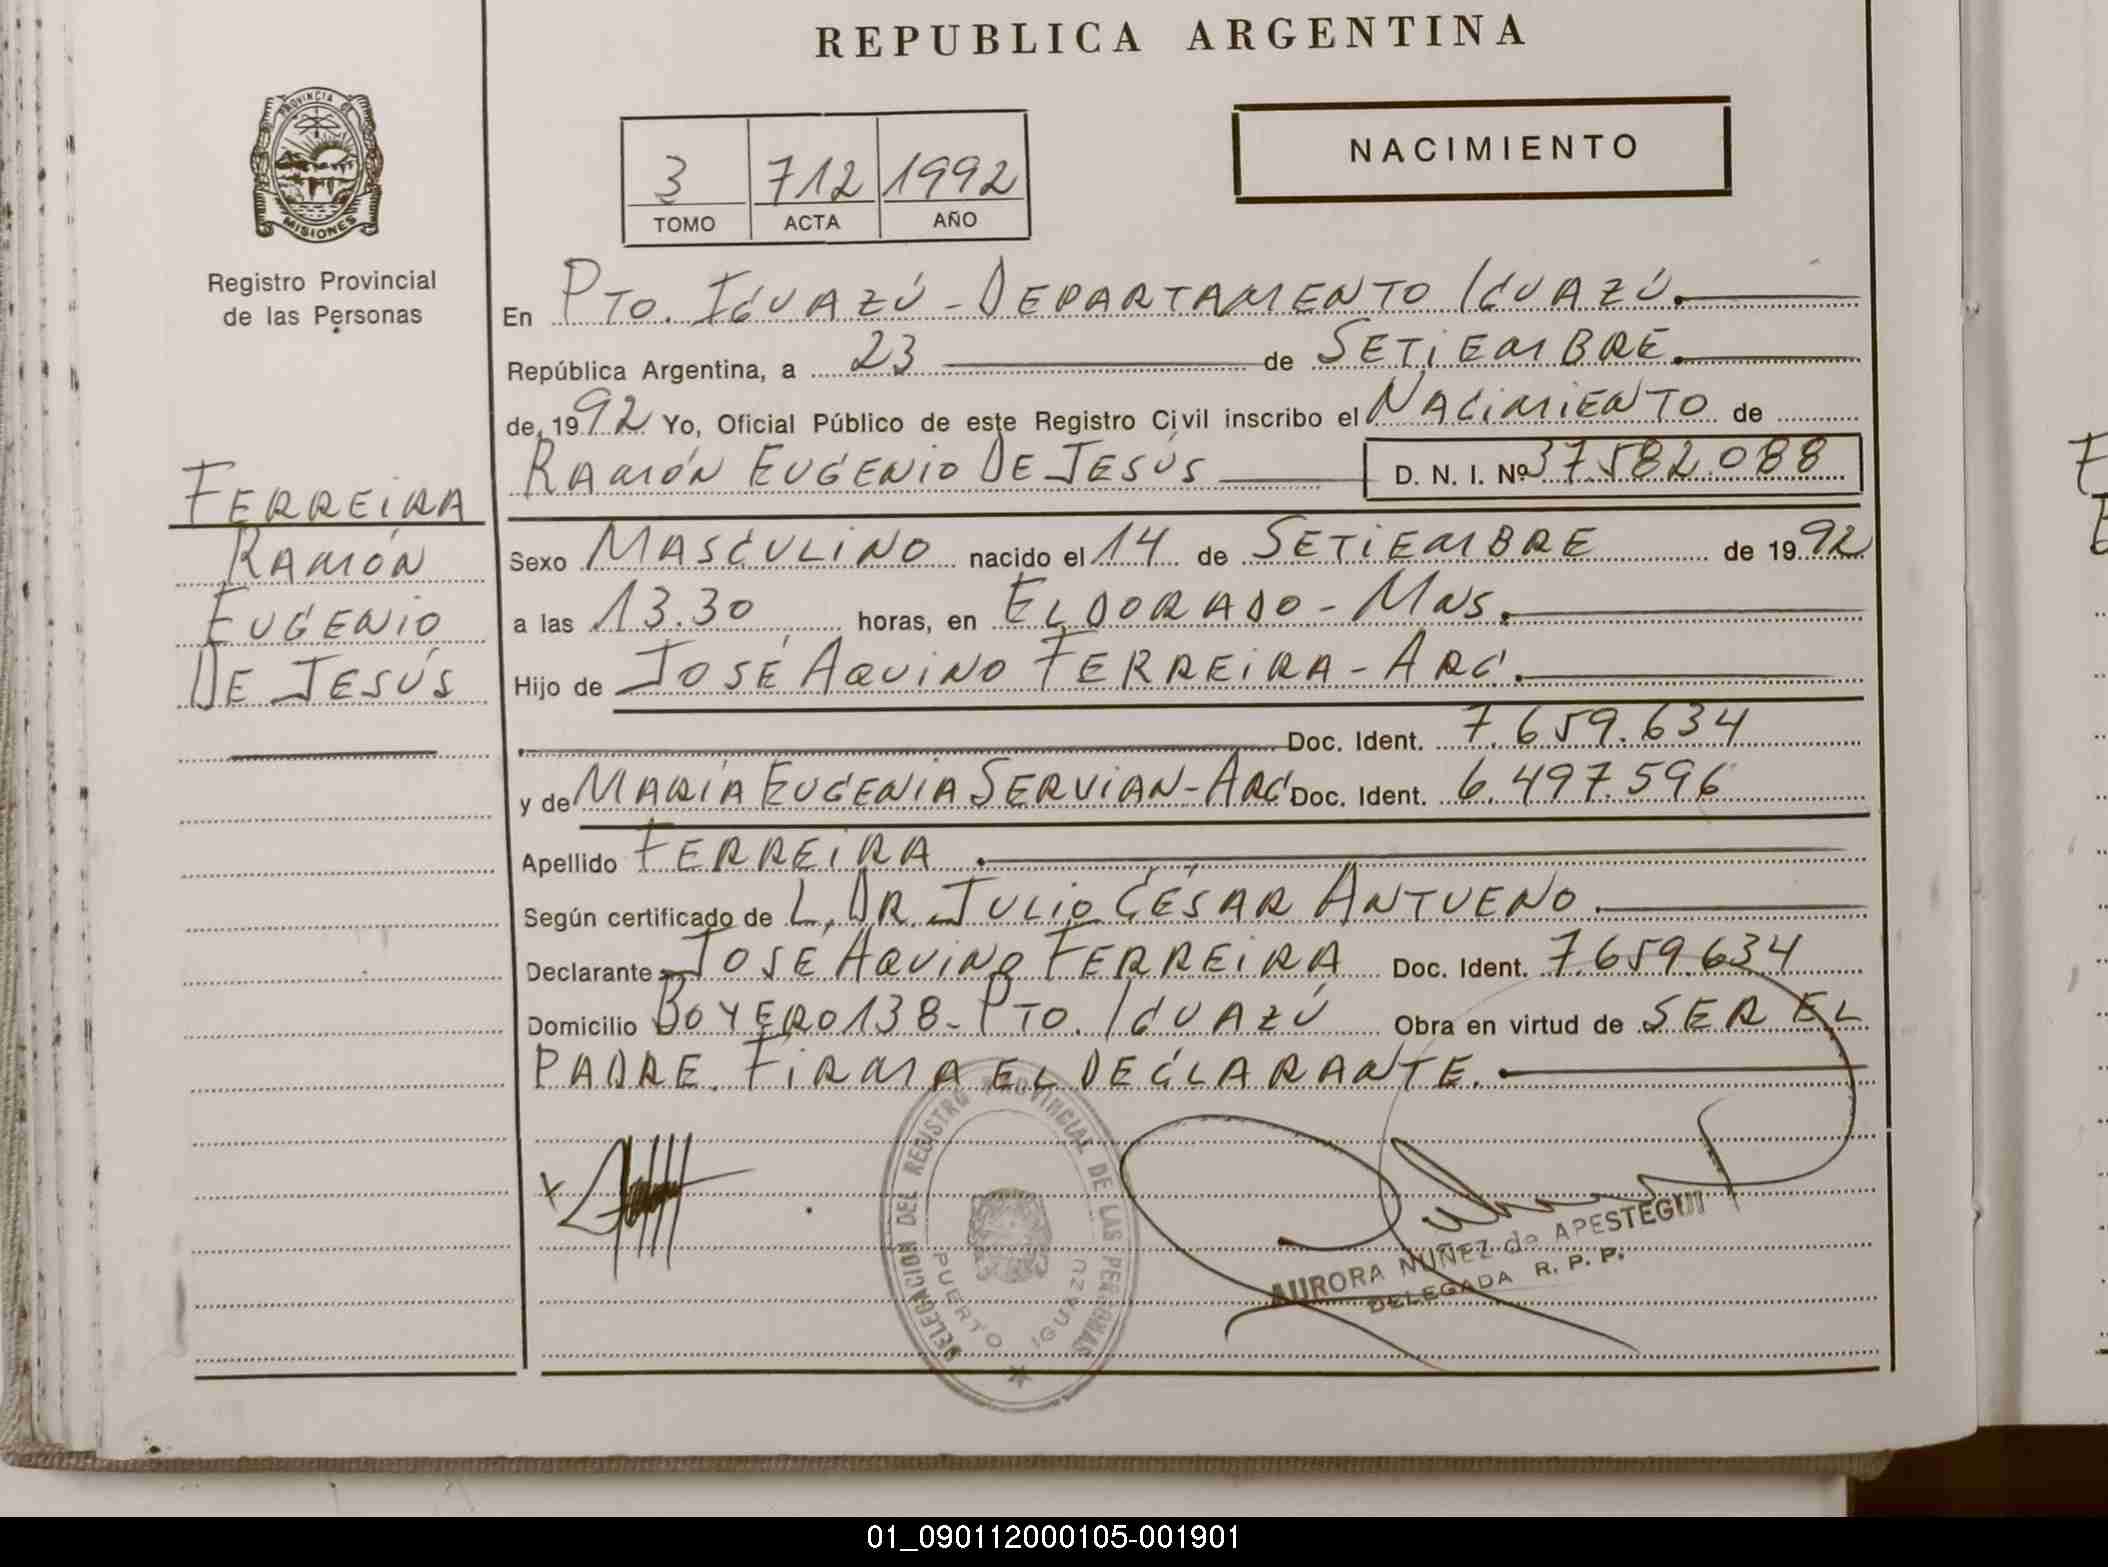 REPUBLICA ARGENTINA
PROVINCIA DE
MISIONES
Registro Provincial
de las Personas
3 712 1992
TOMO ACTA AÑO
NACIMIENTO
En PTO. IGUAZÚ - DEPARTAMENTO IGUAZÚ.
República Argentina, a 23 de SETIEMBRE.
de 1992 Yo, Oficial Público de este Registro Civil inscribo el NACIMIENTO de
RAMÓN EUGENIO DE JESÚS D. N. I. Nº 37.582.088
FERREIRA
RAMÓN
EUGENIO
DE JESÚS
Sexo MASCULINO nacido el 14 de SETIEMBRE de 1992
a las 13.30 horas, en ELDORADO - MNS.
Hijo de JOSÉ AQUINO FERREIRA - ARG.
Doc. Ident. 7.659.634
y de MARÍA EUGENIA SERVIAN - ARG Doc. Ident. 6.497.596
Apellido FERREIRA.
Según certificado de L. DR. JULIO CÉSAR ANTUENO.
Declarante JOSÉ AQUINO FERREIRA Doc. Ident. 7.659.634
Domicilio BOYERO 138 - PTO. IGUAZÚ Obra en virtud de SER EL
PADRE. FIRMA EL DECLARANTE.
DELEGACION DEL REGISTRO PROVINCIAL DE LAS PERSONAS
PUERTO IGUAZU
AURORA NUÑEZ de APESTEGUI
DELEGADA R. P. P.
01_090112000105-001901